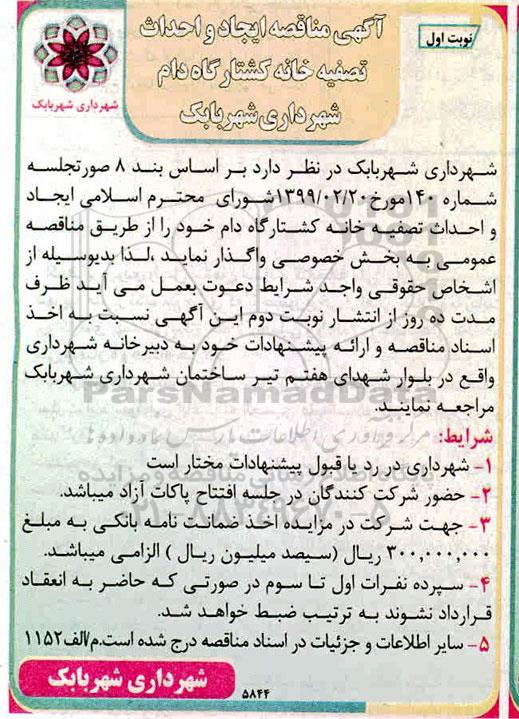 نوبت اول
آگهی مناقصه ایجاد و احداث
تصفیه خانه کشتارگاه دام
شهرداری شهربابک
شهرداری شهربابک
شهرداری شهربابک در نظر دارد بر اساس بند ۸ صورتجلسه
شماره ۱۴۰مورخ۱۳۹۹/۰۲/۲۰شورای محترم اسلامی ایجاد
و احداث تصفیه خانه کشتارگاه دام خود را از طریق مناقصه
عمومی به بخش خصوصی واگذار نماید ،لذا بدیوسیله از
اشخاص حقوقی واجد شرایط دعوت بعمل می آید ظرف
مدت ده روز از انتشار نوبت دوم این آگهی نسبت به اخذ
اسناد مناقصه و ارائه پیشنهادات خود به دبیرخانه شهرداری
واقع در بلوار شهدای هفتم تیر ساختمان شهرداری شهربابک
مراجعه نمایند.
ParsNamadData
شرایط:
۱- شهرداری در رد یا قبول پیشنهادات مختار است
۲- حضور شرکت کنندگان در جلسه افتتاح پاکات آزاد میباشد.
۳- جهت شرکت در مزایده اخذ ضمانت نامه بانکی به مبلغ
۳۰۰,۰۰۰,۰۰۰ ریال (سیصد میلیون ریال ) الزامی میباشد.
۴- سپرده نفرات اول تا سوم در صورتی که حاضر به انعقاد
قرارداد نشوند به ترتیب ضبط خواهد شد.
۵- سایر اطلاعات و جزئیات در اسناد مناقصه درج شده است.م/الف۱۱۵۲
شهرداری شهربابک
۵۸۴۴